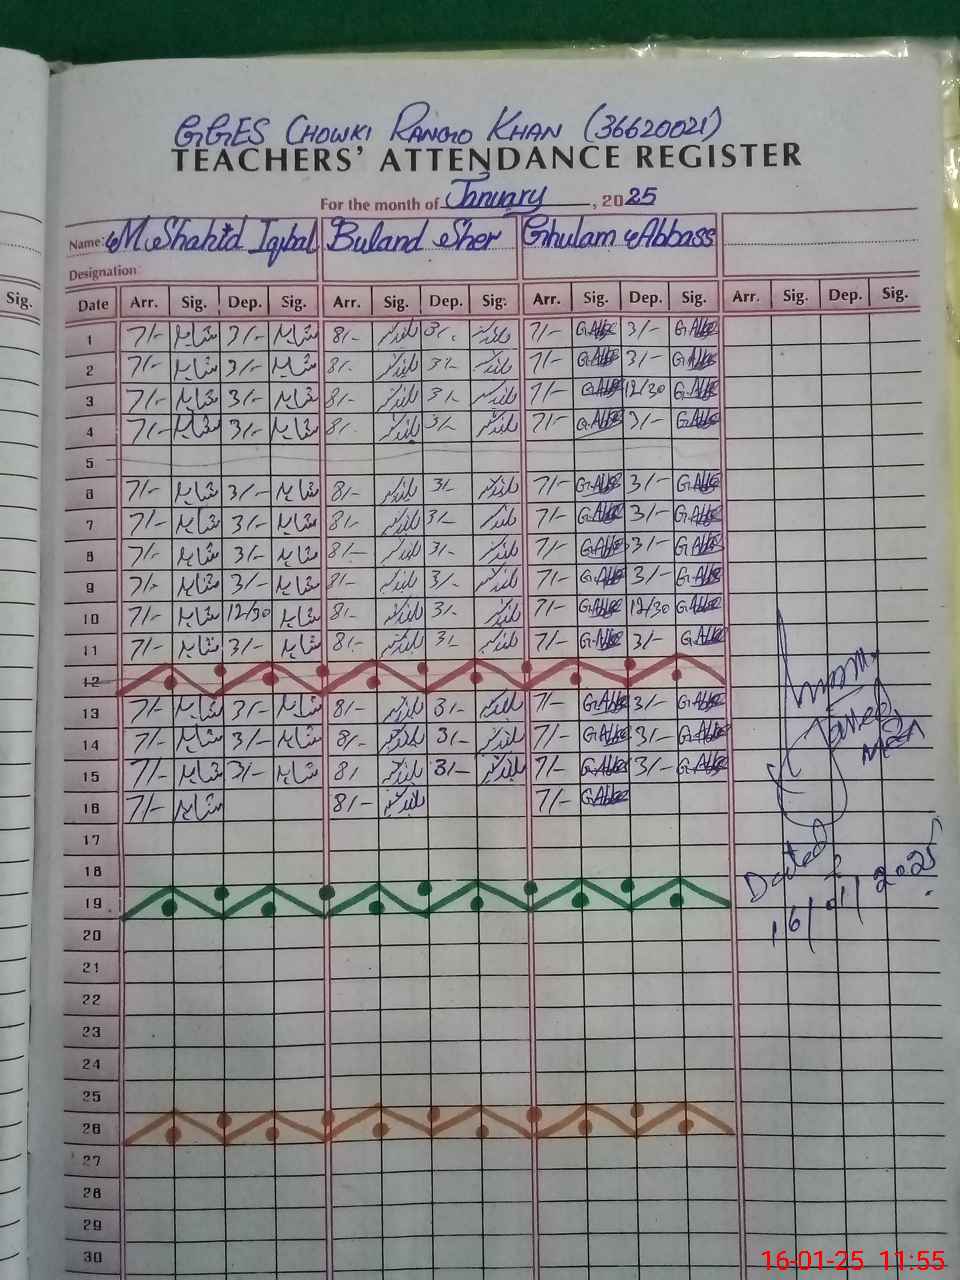 GGES CHOWKI RANGO KHAN (36620021)
TEACHERS' ATTENDANCE REGISTER
For the month of January, 2025
Name: M. Shahid Iqbal Buland Sher Ghulam Abbass
Designation:
Sig. Date Arr. Sig. Dep. Sig. Arr. Sig. Dep. Sig. Arr. Sig. Dep. Sig. Arr. Sig. Dep. Sig.
1 7/- شاہد 3/- شاہد 8/- بلند شیر 3/- بلند شیر 7/- G.Abbc 3/- G.Abbc
2 7/- شاہد 3/- شاہد 8/- بلند شیر 3/- بلند شیر 7/- G.Abbc 3/- G.Abbc
3 7/- شاہد 3/- شاہد 8/- بلند شیر 3/- بلند شیر 7/- G.Abbc 12/30 G.Abbc
4 7/- شاہد 3/- شاہد 8/- بلند شیر 3/- بلند شیر 7/- G.Abbc 3/- G.Abbc
5
6 7/- شاہد 3/- شاہد 8/- بلند شیر 3/- بلند شیر 7/- G.Abbc 3/- G.Abbc
7 7/- شاہد 3/- شاہد 8/- بلند شیر 3/- بلند شیر 7/- G.Abbc 3/- G.Abbc
8 7/- شاہد 3/- شاہد 8/- بلند شیر 3/- بلند شیر 7/- G.Abbc 3/- G.Abbc
9 7/- شاہد 3/- شاہد 8/- بلند شیر 3/- بلند شیر 7/- G.Abbc 3/- G.Abbc
10 7/- شاہد 12/30 شاہد 8/- بلند شیر 3/- بلند شیر 7/- G.Abbc 12/30 G.Abbc
11 7/- شاہد 3/- شاہد 8/- بلند شیر 3/- بلند شیر 7/- G.Abbc 3/- G.Abbc
12
13 7/- شاہد 3/- شاہد 8/- بلند شیر 3/- بلند شیر 7/- G.Abbc 3/- G.Abbc
14 7/- شاہد 3/- شاہد 8/- بلند شیر 3/- بلند شیر 7/- G.Abbc 3/- G.Abbc
15 7/- شاہد 3/- شاہد 8/ بلند شیر 3/- بلند شیر 7/- G.Abbc 3/- G.Abbc
16 7/- شاہد 8/- بلند شیر 7/- G.Abbc
17
18
19
20
21
22
23
24
25
26
27
28
29
30
MEA
Dated
16/01/2025
16-01-25 11:55